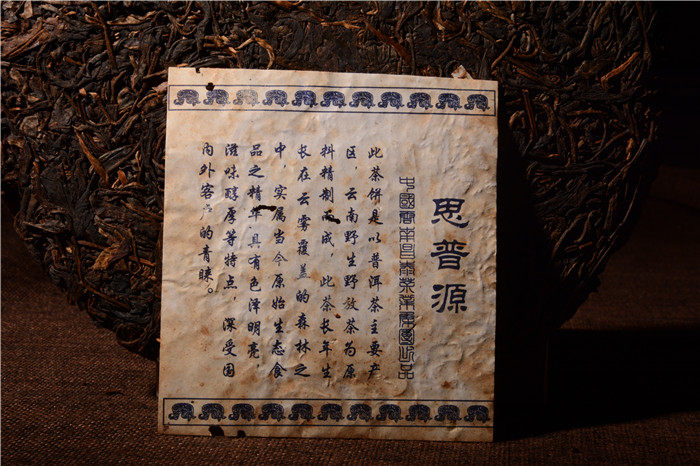 思普源
中國雲南昌泰茶業集團出品
此茶饼是以普洱茶主要产
区，云南野生野放茶为原
料精制而成，此茶长年生
长在云雾覆盖的森林之
中，实属当今原始生态食
品之精华具有色泽明亮，
滋味醇厚等特点，深受国
内外客户的青睐。